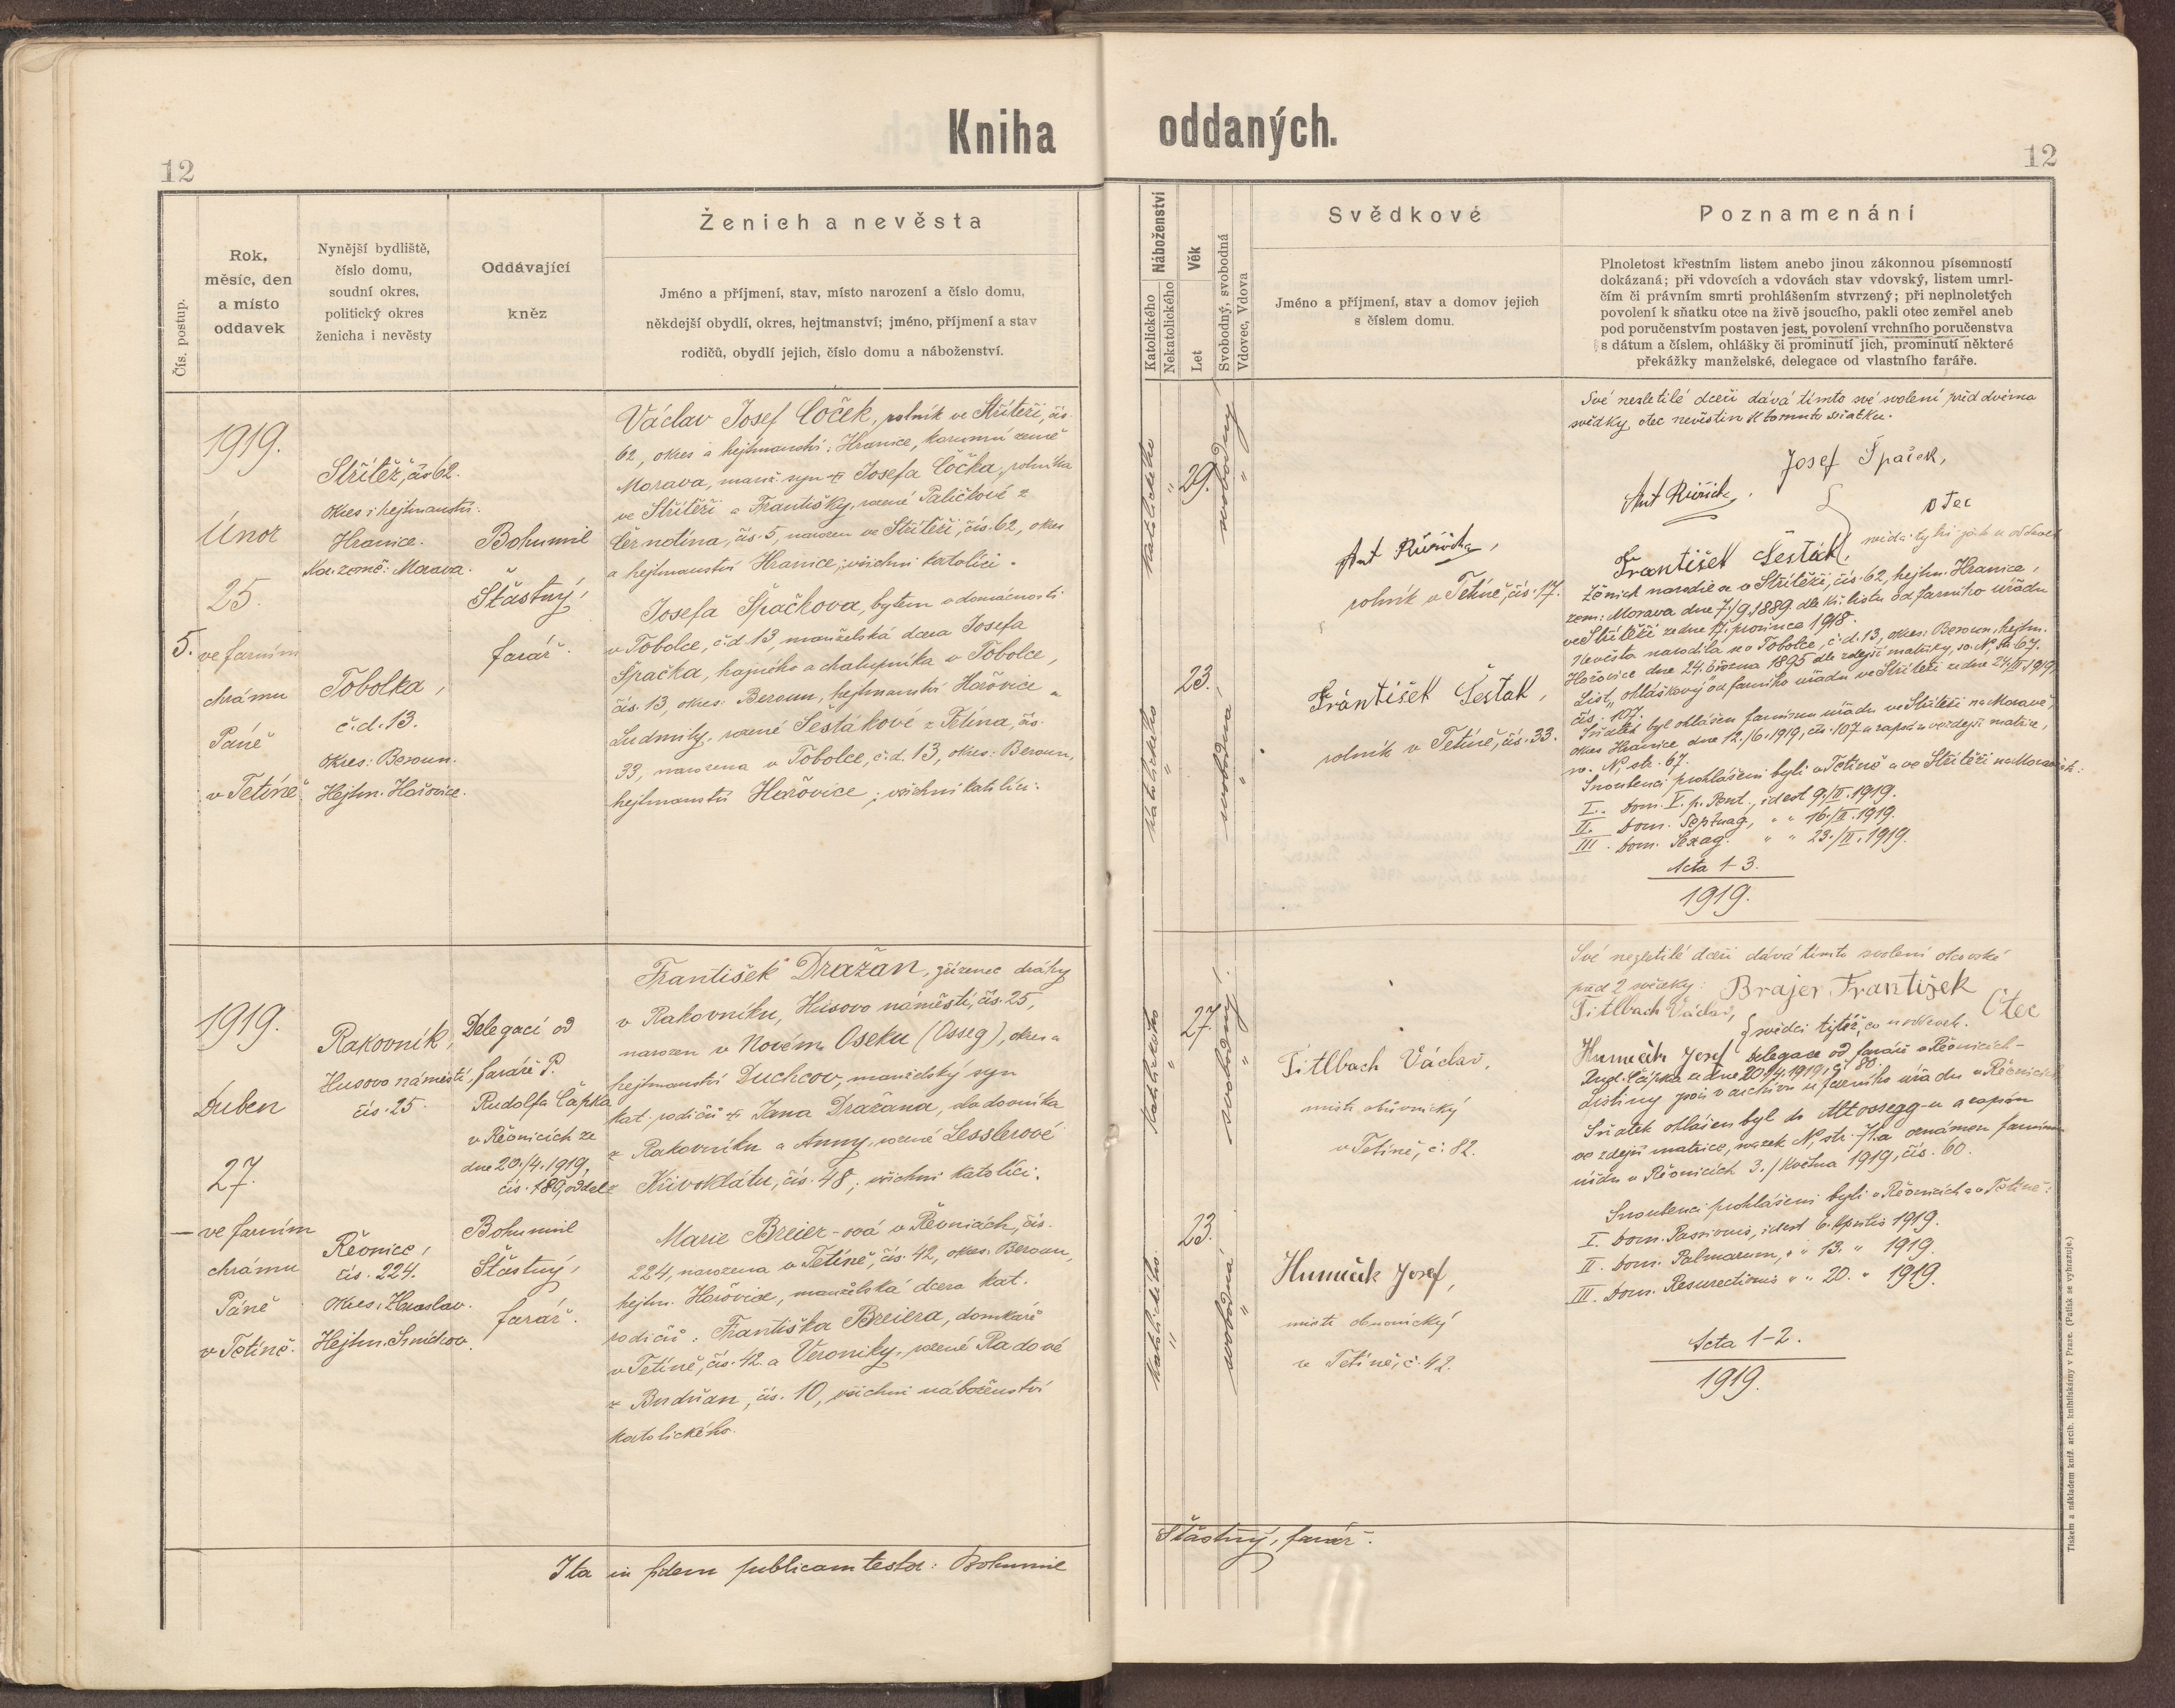 Kniha oddaných.
12
12
Čís. postup.
Rok,
měsíc, den
a místo
oddavek
Nynější bydliště,
číslo domu,
soudní okres,
politický okres
ženicha i nevěsty
Oddávající
kněz
Ženich a nevěsta
Jméno a příjmení, stav, místo narození a číslo domu,
někdejší obydlí, okres, hejtmanství; jméno, příjmení a stav
rodičů, obydlí jejich, číslo domu a náboženství.
Náboženství
Katolického
Nekatolického
Věk
Let
Svobodný, svobodná
Vdovec, Vdova
Svědkové
Jméno a příjmení, stav a domov jejich
s číslem domu.
Poznamenání
Plnoletost křestním listem anebo jinou zákonnou písemností
dokázaná; při vdovcích a vdovách stav vdovský, listem umrl-
čím či právním smrti prohlášením stvrzený; při neplnoletých
povolení k sňatku otce na živě jsoucího, pakli otec zemřel aneb
pod poručenstvím postaven jest, povolení vrchního poručenstva
s dátum a číslem, ohlášky či prominutí jich, prominutí některé
překážky manželské, delegace od vlastního faráře.
5.
1919.
Únor
25.
ve farním
chrámu
Páně
v Tetíně
Střítěž, čís 62.
okres i hejtmanství:
Hranice.
Kor. země: Morava.
Tobolka,
č.d. 13.
okres: Beroun.
Hejtm. Hořovice.
Bohumil
Šťastný,
farář.
Václav Josef Cóček, rolník ve Střítěži, čís.
62, okres a hejtmanství: Hranice, korunní země
Morava, manž. syn + Josefa Cóčka, rolníka
ve Střítěži a Františky, rozené Paličkové z
Černotína, čís. 5, narozen ve Střítěži, čís. 62, okres
a hejtmanství Hranice; všichni katolíci.
Josefa Špačkova, bytem v domácnosti
v Tobolce, č.d. 13, manželská dcera Josefa
Špačka, hajného a chalupníka v Tobolce,
čís. 13, okres: Beroun, hejtmanství Hořovice a
Ludmily, rozené Šestákové z Tetína, čís.
33, narozena v Tobolce, č.d. 13, okres: Beroun,
hejtmanství Hořovice; všichni katolíci.
katolického
"
29.
svobodný
"
katolického
"
23.
svobodna
"
Ant Růžička,
rolník v Tetíně, čís. 17.
František Šesták,
rolník v Tetíně, čís. 33.
Své nezletilé dceři dává tímto své svolení před dvěma
svědky, otec nevěstin k tomuto sňatku.
Josef Špaček,
otec
Ant Růžička,
František Šesták,
Ženich narodil se v Střítěži, čís. 62, hejtm. Hranice,
zem: Morava dne 7./9. 1889 dle kř. listu od farního úřadu
ve Střítěži ze dne 17. prosince 1918.
Nevěsta narodila se v Tobolce, č.d. 13, okres: Beroun, hejtm.
Hořovice dne 24. března 1895 dle zdejší matriky, sv. N, str. 67.
List „ohláškový“ od farního úřadu ve Střítěži ze dne 24./II. 1919,
čís. 107.
Sňatek byl ohlášen farnímu úřadu ve Střítěži na Moravě,
okres Hranice dne 12./6. 1919, čís. 107 a zapsán ve zdejší matrice,
sv. N, str. 67.
Snoubenci prohlášeni byli v Tetíně a ve Střítěži na Moravě:
I. Dom. V. p. Pent., id est 9./II. 1919.
II. Dom. Septuag, " " 16./II. 1919.
III. Dom. Sexag. " " 23./II. 1919.
Acta 1-3.
1919.
1919.
Duben
27.
— ve farním
chrámu
Páně
v Tetíně.
Rakovník,
Husovo náměstí,
čís. 25.
Řevnice,
čís. 224.
okres: Zbraslav.
Hejtm. Smíchov.
Delegací od
faráře P.
Rudolfa Čapka
v Řevnicích ze
dne 20./4. 1919,
čís. 180, oddal:
Bohumil
Šťastný,
farář.
František Dražan, zřízenec dráhy
v Rakovníku, Husovo náměstí, čís. 25,
narozen v Novém Oseku (Osseg), okres a
hejtmanství Duchcov, manželský syn
kat. rodičů + Jana Dražana, sladovníka
z Rakovníku a Anny, rozené Lesslerové
z Křivoklátu, čís. 48; všichni katolíci.
Marie Breier-ová v Řevnicích, čís.
224, narozena v Tetíně, čís. 42, okres: Beroun,
hejtm. Hořovice, manželská dcera kat.
rodičů: Františka Breiera, domkáře
v Tetíně, čís. 42. a Veroniky, rozené Radové
z Budňan, čís. 10, všichni náboženství
katolického.
katolického
"
27.
svobodný
"
katolického.
"
23.
svobodná
"
Fitlbach Václav,
mistr obuvnický
v Tetíně, č. 82.
Humeček Josef,
mistr
v Tetíně, č. 42.
Své nezletilé dceři dává tímto svolení otcovské
před 2 svědky: Brajer František
Otec
Fitlbach Václav,
svědci titéž, co u oddavek.
Humeček Josef Delegace od faráře v Řevnicích –
Rud. Čapka ze dne 20./4. 1919, č. 180.
Listiny jsou v archivu u farního úřadu v Řevnicích
Sňatek ohlášen byl do Alt Ossegg-u a zapsán
ve zdejší matrice, svazek N, str. 71. a oznámen farnímu
úřadu v Řevnicích 3./května 1919, čís. 60.
Snoubenci prohlášeni byli v Řevnicích a v Tetíně:
I. Dom. Passionis, id est 6. Aprilis 1919.
II. Dom. Palmarum, " " 13. " 1919.
III. Dom. Resurectionis " " 20. " 1919.
Acta 1-2.
1919.
Ita in fidem publicam testor: Bohumil
Šťastný, farář.
Tiskem a nákladem kníž. arcib. knihtiskárny v Praze. (Patisk se vyhrazuje.)